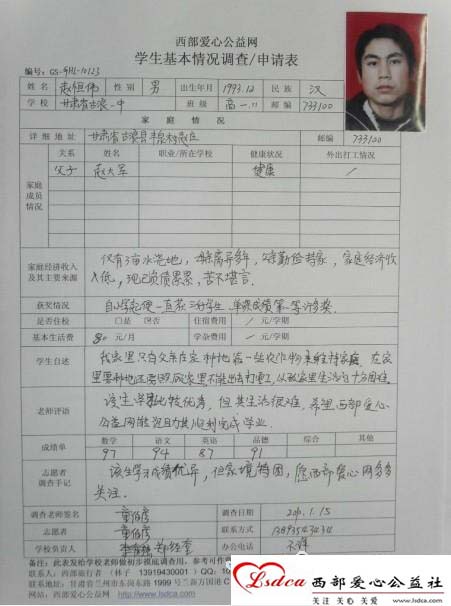 西部爱心公益网
学生基本情况调查/申请表
编号：GS-
姓名 赵恒伟 性别 男 出生年月 1993.12 民族 汉
学校 甘肃省古浪一中 班级 高一.11 邮编 733100
家庭情况
详细地址 甘肃省古浪县 邮编 733100
关系 姓名 职业/所在学校 健康状况 外出打工情况
家庭成员情况
父子 赵大军 健康 /
家庭经济收入及其主要来源
仅有 亩水浇地，母亲离异多年，父亲勤俭持家，家庭经济收
入低，现已负债累累，苦不堪言.
获奖情况 自小学起便一直获三好学生，单科成绩第一等许多奖.
是否住校 □是 □否 住宿费用 / 元/学期
基本生活费 80 元/月 学杂费用 / 元/学期
学生自述
我家里只有父亲在家种地 一些农作物来维持家庭，在家
里要种地还要照顾家里不能出去打工，从致家里生活十分困难.
老师评语
该生学习比较优秀，但其生活很困难，希望西部爱心
公益网能 其顺利完成学业.
成绩单
数学 语文 英语 品德 综合 其他
97 94 87 91
志愿者调查手记
该生学习成绩优异，但家境特困，愿西部爱心网多多
关注.
调查老师签名 董伯彦 调查日期 1.15
志愿者 董伯彦 联系方式
学校负责人 办公电话
备注：此表发给学校老师做初步摸底调查，参考可作
联系人：西部旅行者（林子 13919430001）QQ：
地址：甘肃省兰州市东岗东路1999号兰炼万国港C
Lsdca 西部爱心公益社
www.lsdca.com 关注 关心 关爱